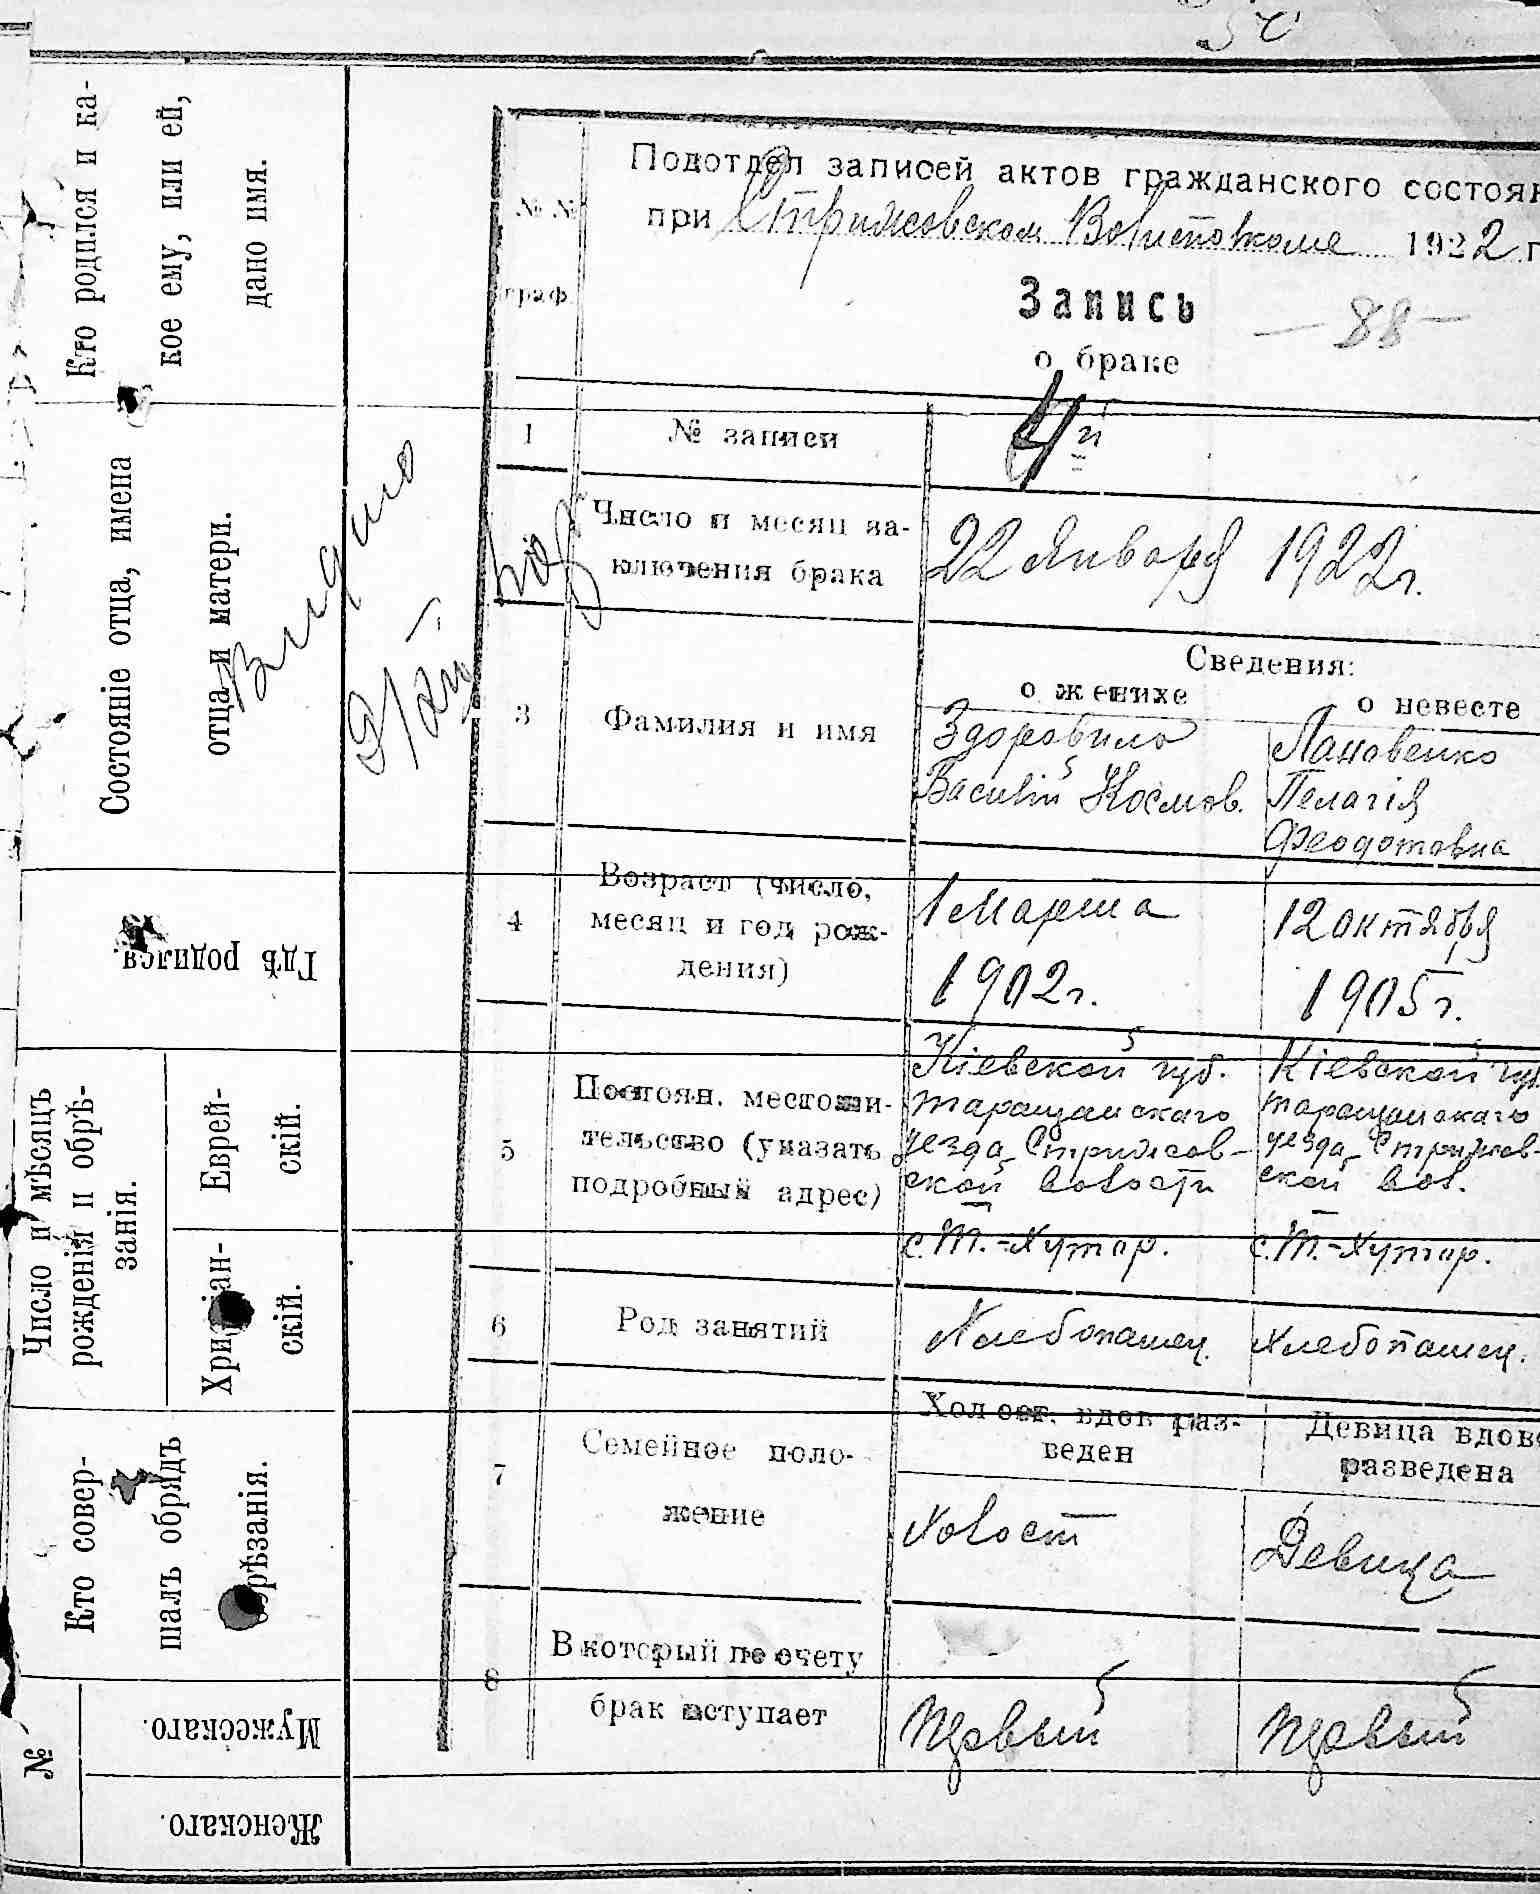 Кто родился и ка-
кое ему, или ей,
дано имя.
Состояніе отца, имена
отца и матери.
Гдѣ родился.
Число и мѣсяцъ
рожденія и обрѣ-
занія.
Еврей-
скій.
Христіан-
скій.
Кто совер-
шалъ обрядъ
обрѣзанія.
№
Мужескаго.
Женскаго.
Видано
№№
граф.
Подотдел записей актов гражданского состоян
при Стрижовском Волисполкоме 1922 г
Запись
— 88 —
о браке
1
№ записи
4й
Число и месяц за-
ключения брака
22 Января 1922 г.
Сведения:
о женихе
о невесте
3
Фамилия и имя
Здоровило
Василій Космов.
Лановенко
Пелагія
Феодотовна
4
Возраст (число,
месяц и год рож-
дения)
1 Марта
1902 г.
12 октября
1905 г.
5
Постоян. местожи-
тельство (указать
подробный адрес)
Кіевской губ.
Таращанскаго
уезда Стрижов-
ской волости
с. Т.-Хутор.
Кіевской губ.
Таращанскаго
уезда Стрижов-
ской вол.
с. Т.-Хутор.
6
Род занятий
Хлебопашец.
Хлебопашец.
7
Семейное поло-
жение
Холост. вдов раз-
веден
Девица вдов
разведена
Холост
Девица
8
В который по счету
брак вступает
Первый
Первый